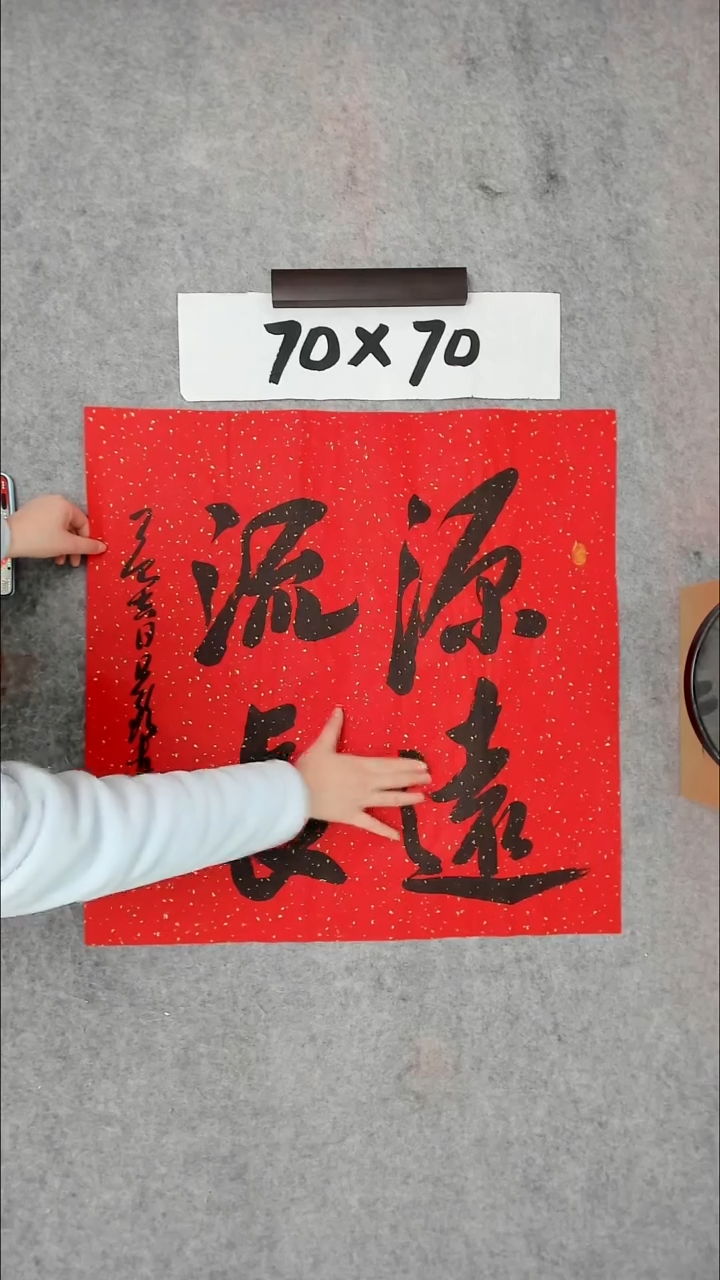 70×70
源遠
流長